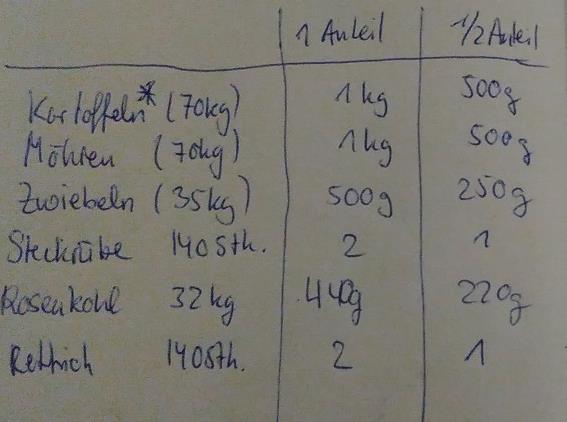 1 Anteil 1/2 Anteil
Kartoffeln* (70kg) 1kg 500g
Möhren (70kg) 1kg 500g
Zwiebeln (35kg) 500g 250g
Steckrübe 140Stk. 2 1
Rosenkohl 32kg 440g 220g
Rettich 140Stk. 2 1